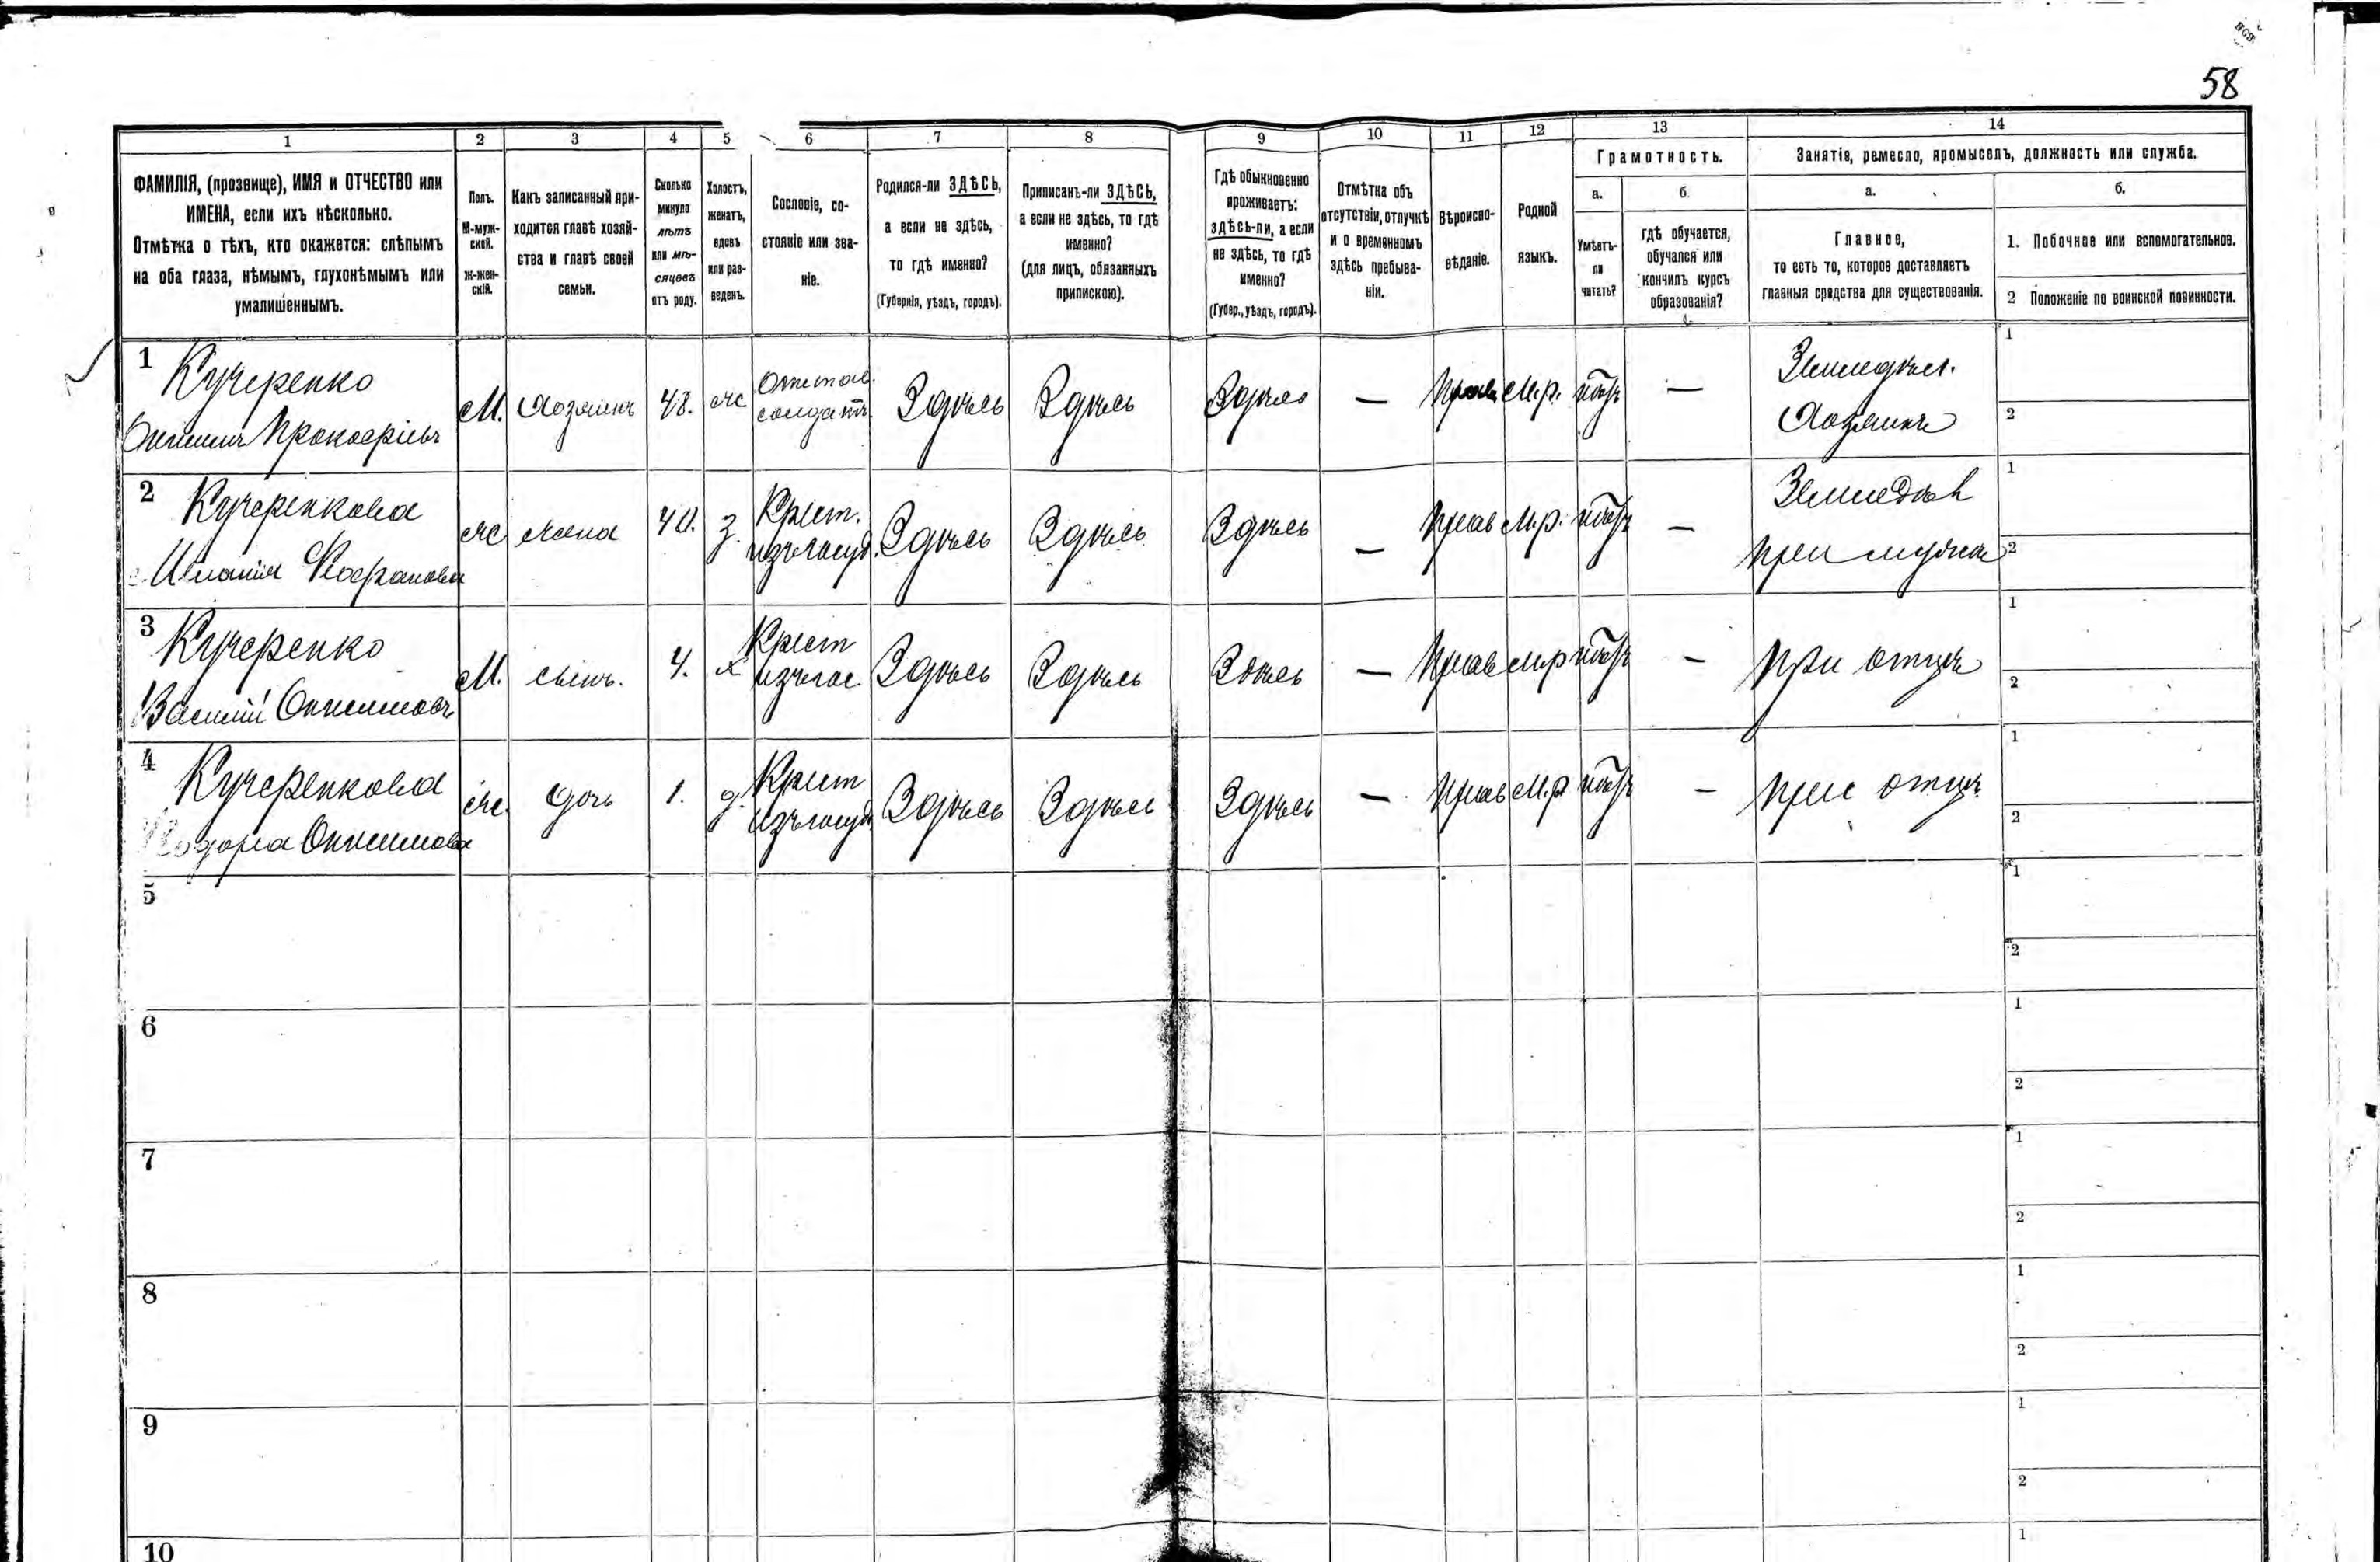 58
1 2 3 4 5 6 7 8 9 10 11 12 13 14
ФАМИЛІЯ, (прозвище), ИМЯ и ОТЧЕСТВО или
ИМЕНА, если ихъ нѣсколько.
Отмѣтка о тѣхъ, кто окажется: слѣпымъ
на оба глаза, нѣмымъ, глухонѣмымъ или
умалишённымъ.
Полъ.
М-муж-
ской.
Ж-жен-
скій.
Какъ записанный при-
ходится главѣ хозяй-
ства и главѣ своей
семьи.
Сколько
минуло
лѣтъ
или мѣ-
сяцевъ
отъ роду.
Холостъ,
женатъ,
вдовъ
или раз-
веденъ.
Сословіе, со-
стояніе или зва-
ніе.
Родился-ли ЗДѢСЬ,
а если не здѣсь,
то гдѣ именно?
(Губернія, уѣздъ, городъ).
Приписанъ-ли ЗДѢСЬ,
а если не здѣсь, то гдѣ
именно?
(для лицъ, обязанныхъ
припискою).
Гдѣ обыкновенно
проживаетъ:
здѣсь-ли, а если
не здѣсь, то гдѣ
именно?
(Губер., уѣздъ, городъ).
Отмѣтка объ
отсутствіи, отлучкѣ
и о временномъ
здѣсь пребыва-
ніи.
Вѣроиспо-
вѣданіе.
Родной
языкъ.
Грамотность.
а.
Умѣетъ-
ли
читать?
б.
гдѣ обучается,
обучался или
кончилъ курсъ
образованія?
Занятіе, ремесло, промыселъ, должность или служба.
а.
Главное,
то есть то, которое доставляетъ
главныя средства для существованія.
б.
1. Побочное или вспомогательное.
2 Положеніе по воинской повинности.
1 Кучеренко
Онисимъ Прокофіевъ
М.
Хозяинъ
48.
ж
Отстав.
солдатъ
Здѣсь
Здѣсь
Здѣсь
—
Прав
М.р.
нѣтъ
—
Земледѣл.
Хозяинъ
1
2
2 Кучеренкова
ж
жена
40.
з.
Крест.
изъ госуд.
Здѣсь
Здѣсь
Здѣсь
—
Прав
М.р.
нѣтъ
—
Земледѣл
при мужѣ
1
2
3 Кучеренко
Василій Онисимовъ
М.
сынъ.
4.
х
Крест
изъ гос.
Здѣсь
Здѣсь
Здѣсь
—
Прав
М.р
нѣтъ
—
При отцѣ
1
2
4 Кучеренкова
Онисимова
ж.
дочь
1.
д.
Крест
изъ госуд.
Здѣсь
Здѣсь
Здѣсь
—
Прав
М.р
нѣтъ
—
при отцѣ
1
2
5
1
2
6
1
2
7
1
2
8
1
2
9
1
2
10
1